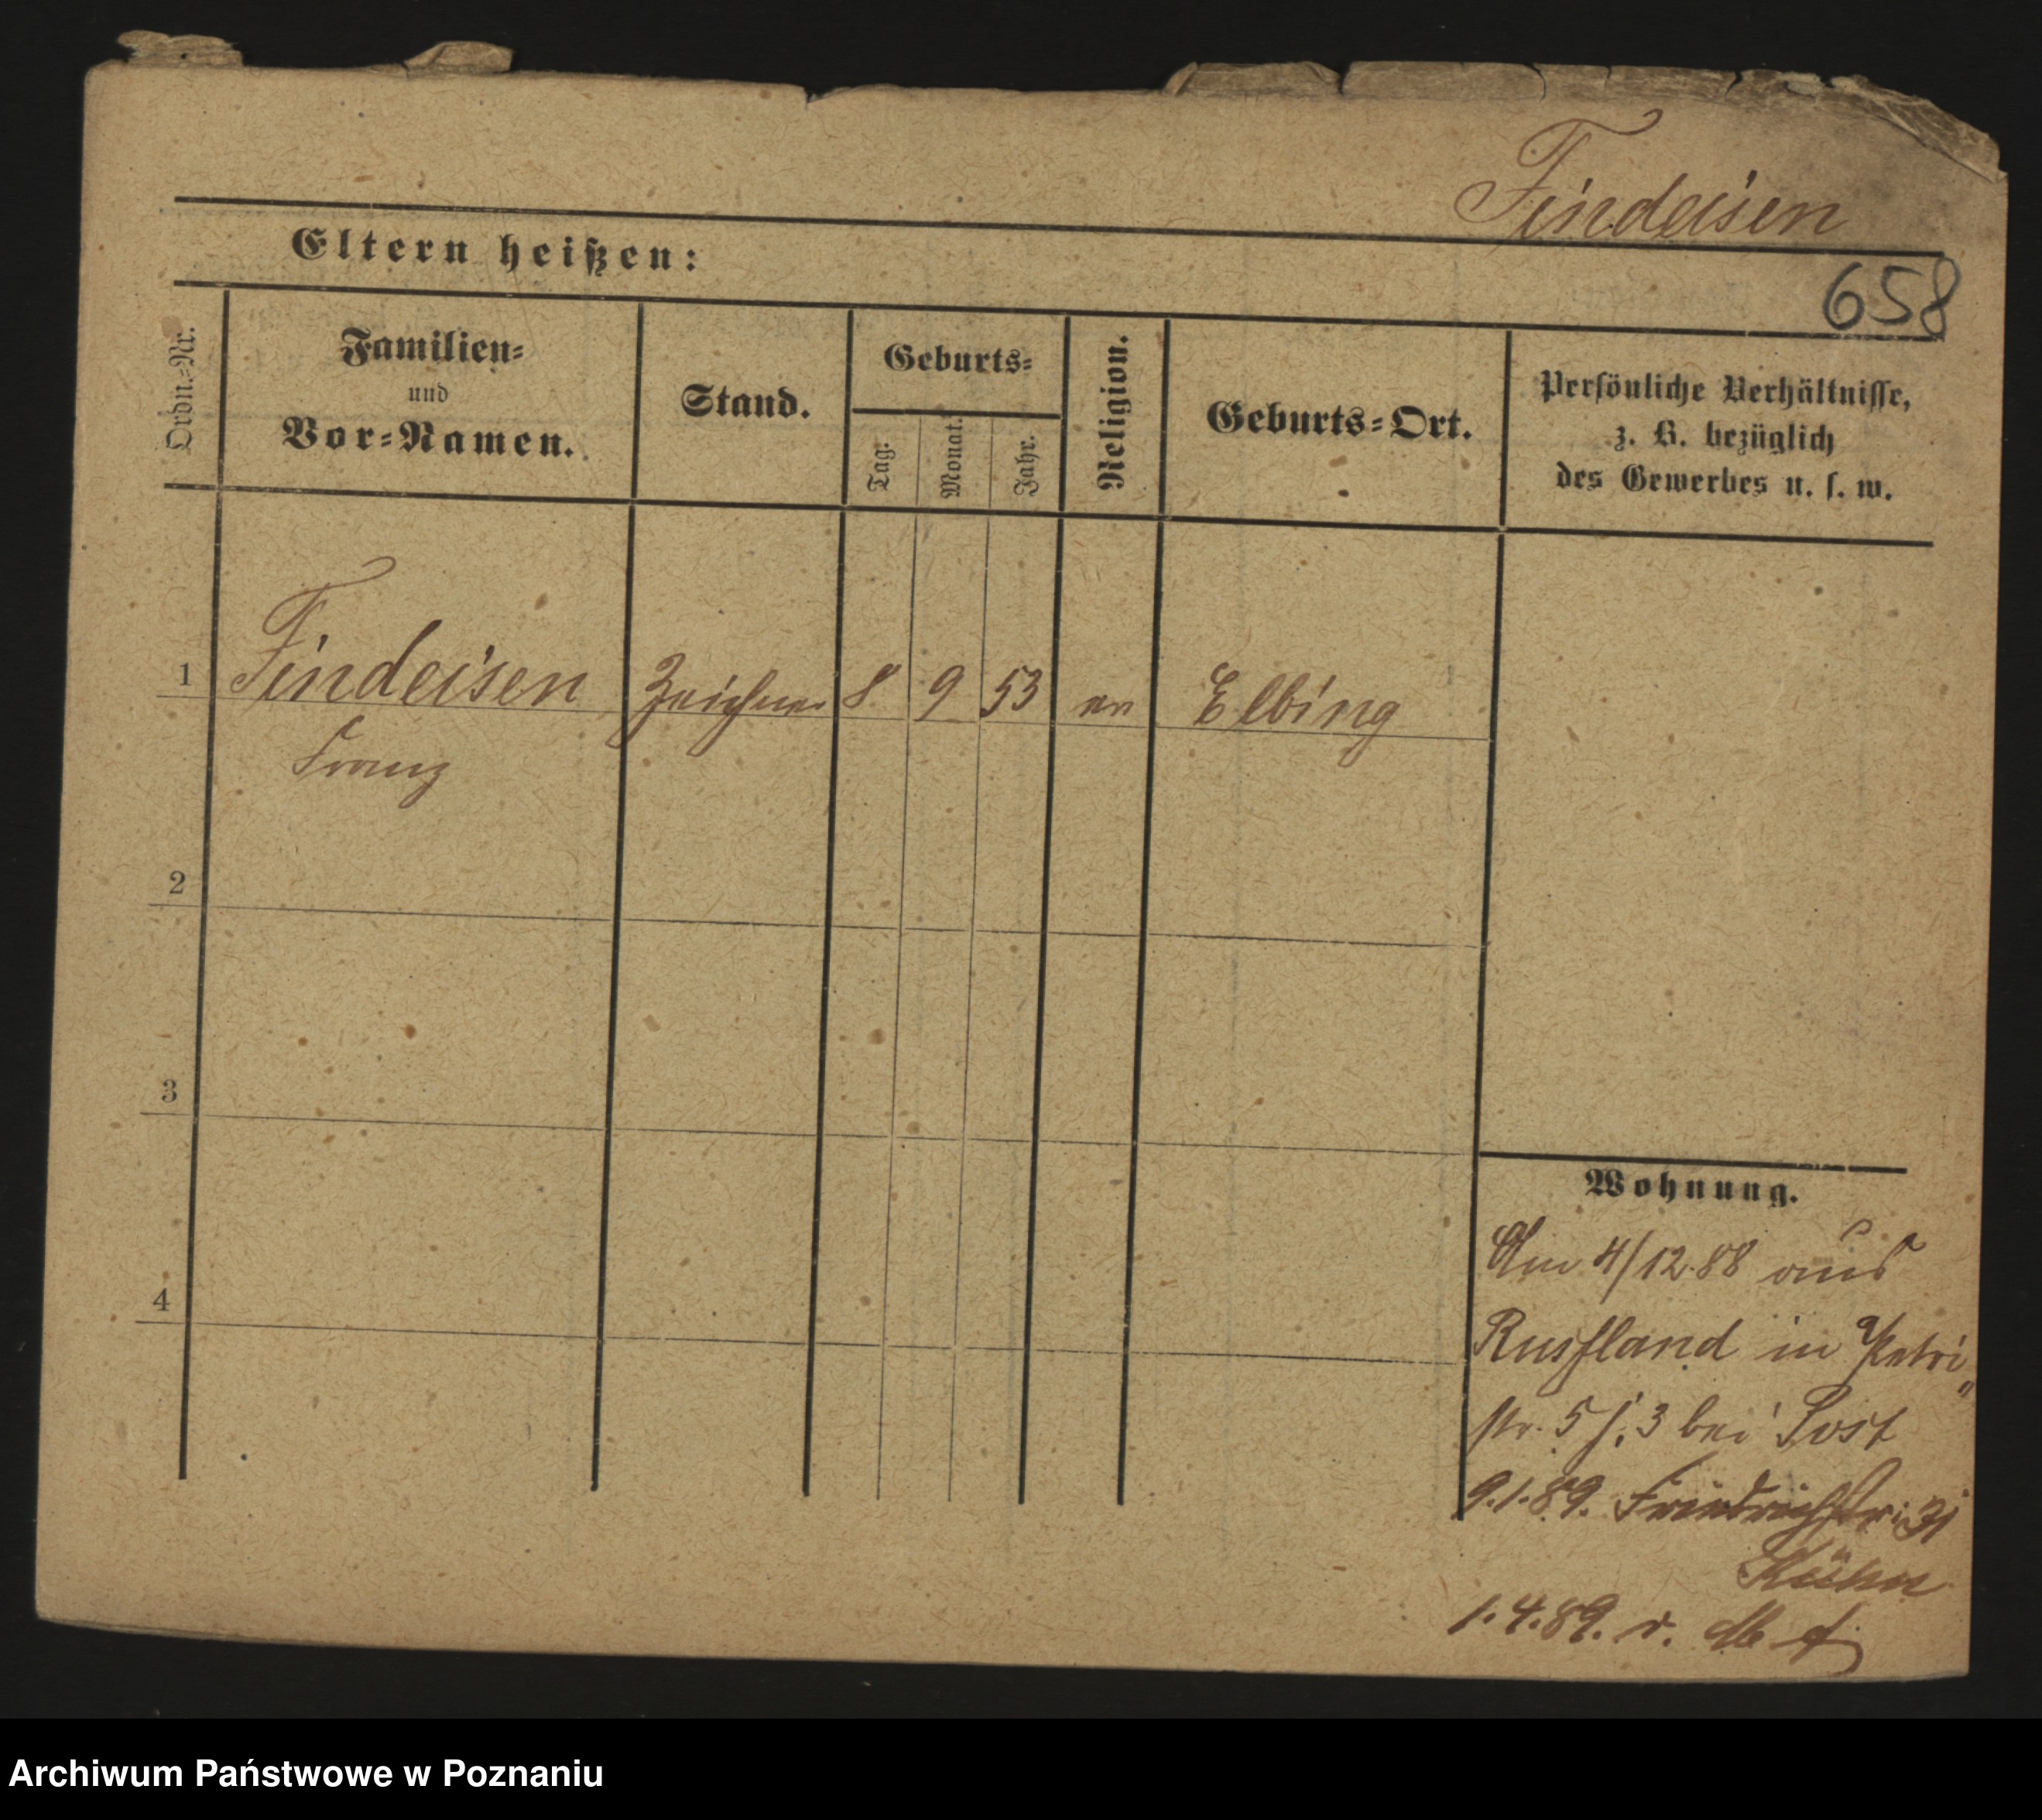 Findeisen
Eltern heißen:
658
Ordn.-Nr.
Familien-
und
Vor-Namen.
Stand.
Geburts-
Tag.
Monat.
Jahr.
Religion.
Geburts-Ort.
Persönliche Verhältnisse,
z. B. bezüglich
des Gewerbes u. s. w.
1 Findeisen Zeichner 8 9 53 ev Elbing
Franz
2
3
4
Wohnung.
Am 4/12.88 aus
Russland in Petri
str. 5 3 bei
9.1.89. Friedrichstr:
Kühn
1.4.89. v.
Archiwum Państwowe w Poznaniu